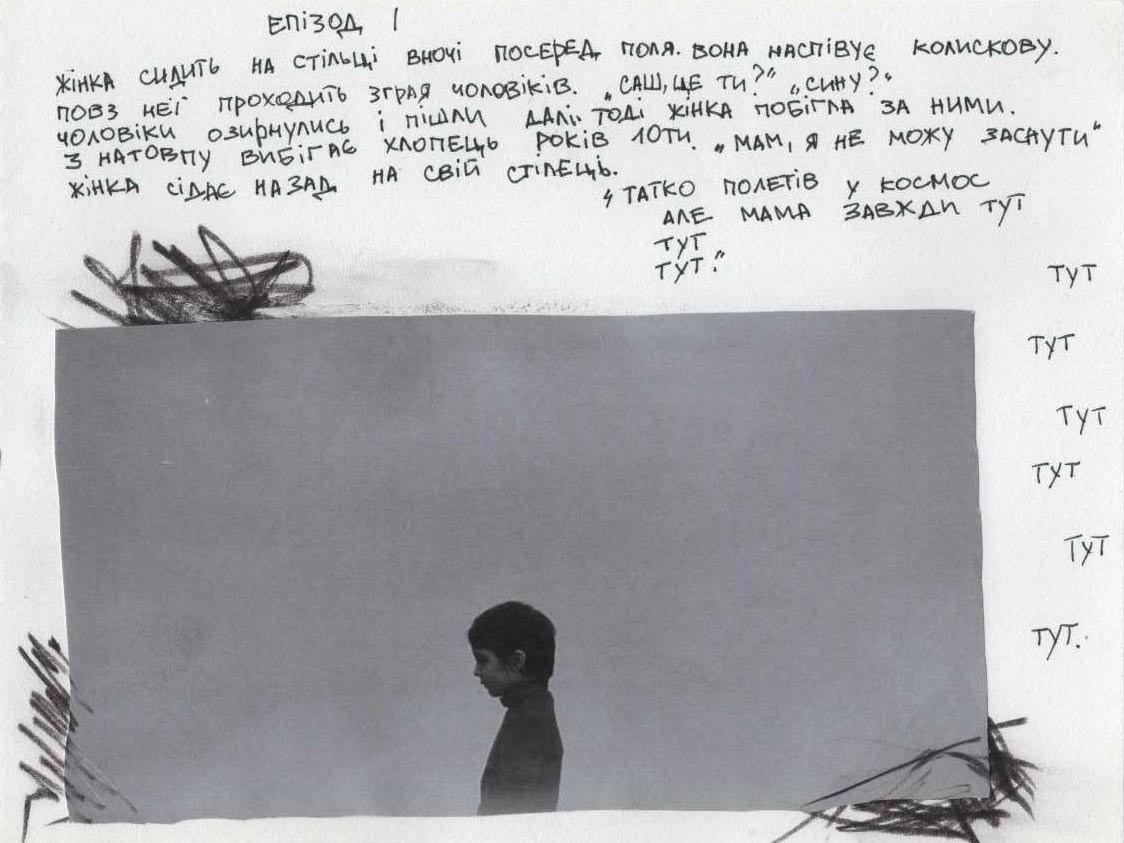 ЕПІЗОД 1
ЖІНКА СИДИТЬ НА СТІЛЬЦІ ВНОЧІ ПОСЕРЕД ПОЛЯ. ВОНА НАСПІВУЄ КОЛИСКОВУ.
ПОВЗ НЕЇ ПРОХОДИТЬ ЗГРАЯ ЧОЛОВІКІВ. „САШ, ЦЕ ТИ?“ „СИНУ?“
ЧОЛОВІКИ ОЗИРНУЛИСЬ І ПІШЛИ ДАЛІ. ТОДІ ЖІНКА ПОБІГЛА ЗА НИМИ.
З НАТОВПУ ВИБІГАЄ ХЛОПЕЦЬ РОКІВ 10ТИ. „МАМ, Я НЕ МОЖУ ЗАСНУТИ“
ЖІНКА СІДАЄ НАЗАД НА СВІЙ СТІЛЕЦЬ.
„ТАТКО ПОЛЕТІВ У КОСМОС
АЛЕ МАМА ЗАВЖДИ ТУТ
ТУТ
ТУТ.“
ТУТ
ТУТ
ТУТ
ТУТ
ТУТ
ТУТ.